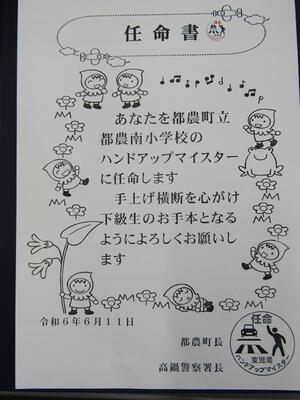 任命書
あなたを都農町立
都農南小学校の
ハンドアップマイスター
に任命します
手上げ横断を心がけ
下級生のお手本となる
ようによろしくお願いし
ます
令和6年6月11日
都農町長
高鍋警察署長
任命
東児湯
ハンドアップマイスター